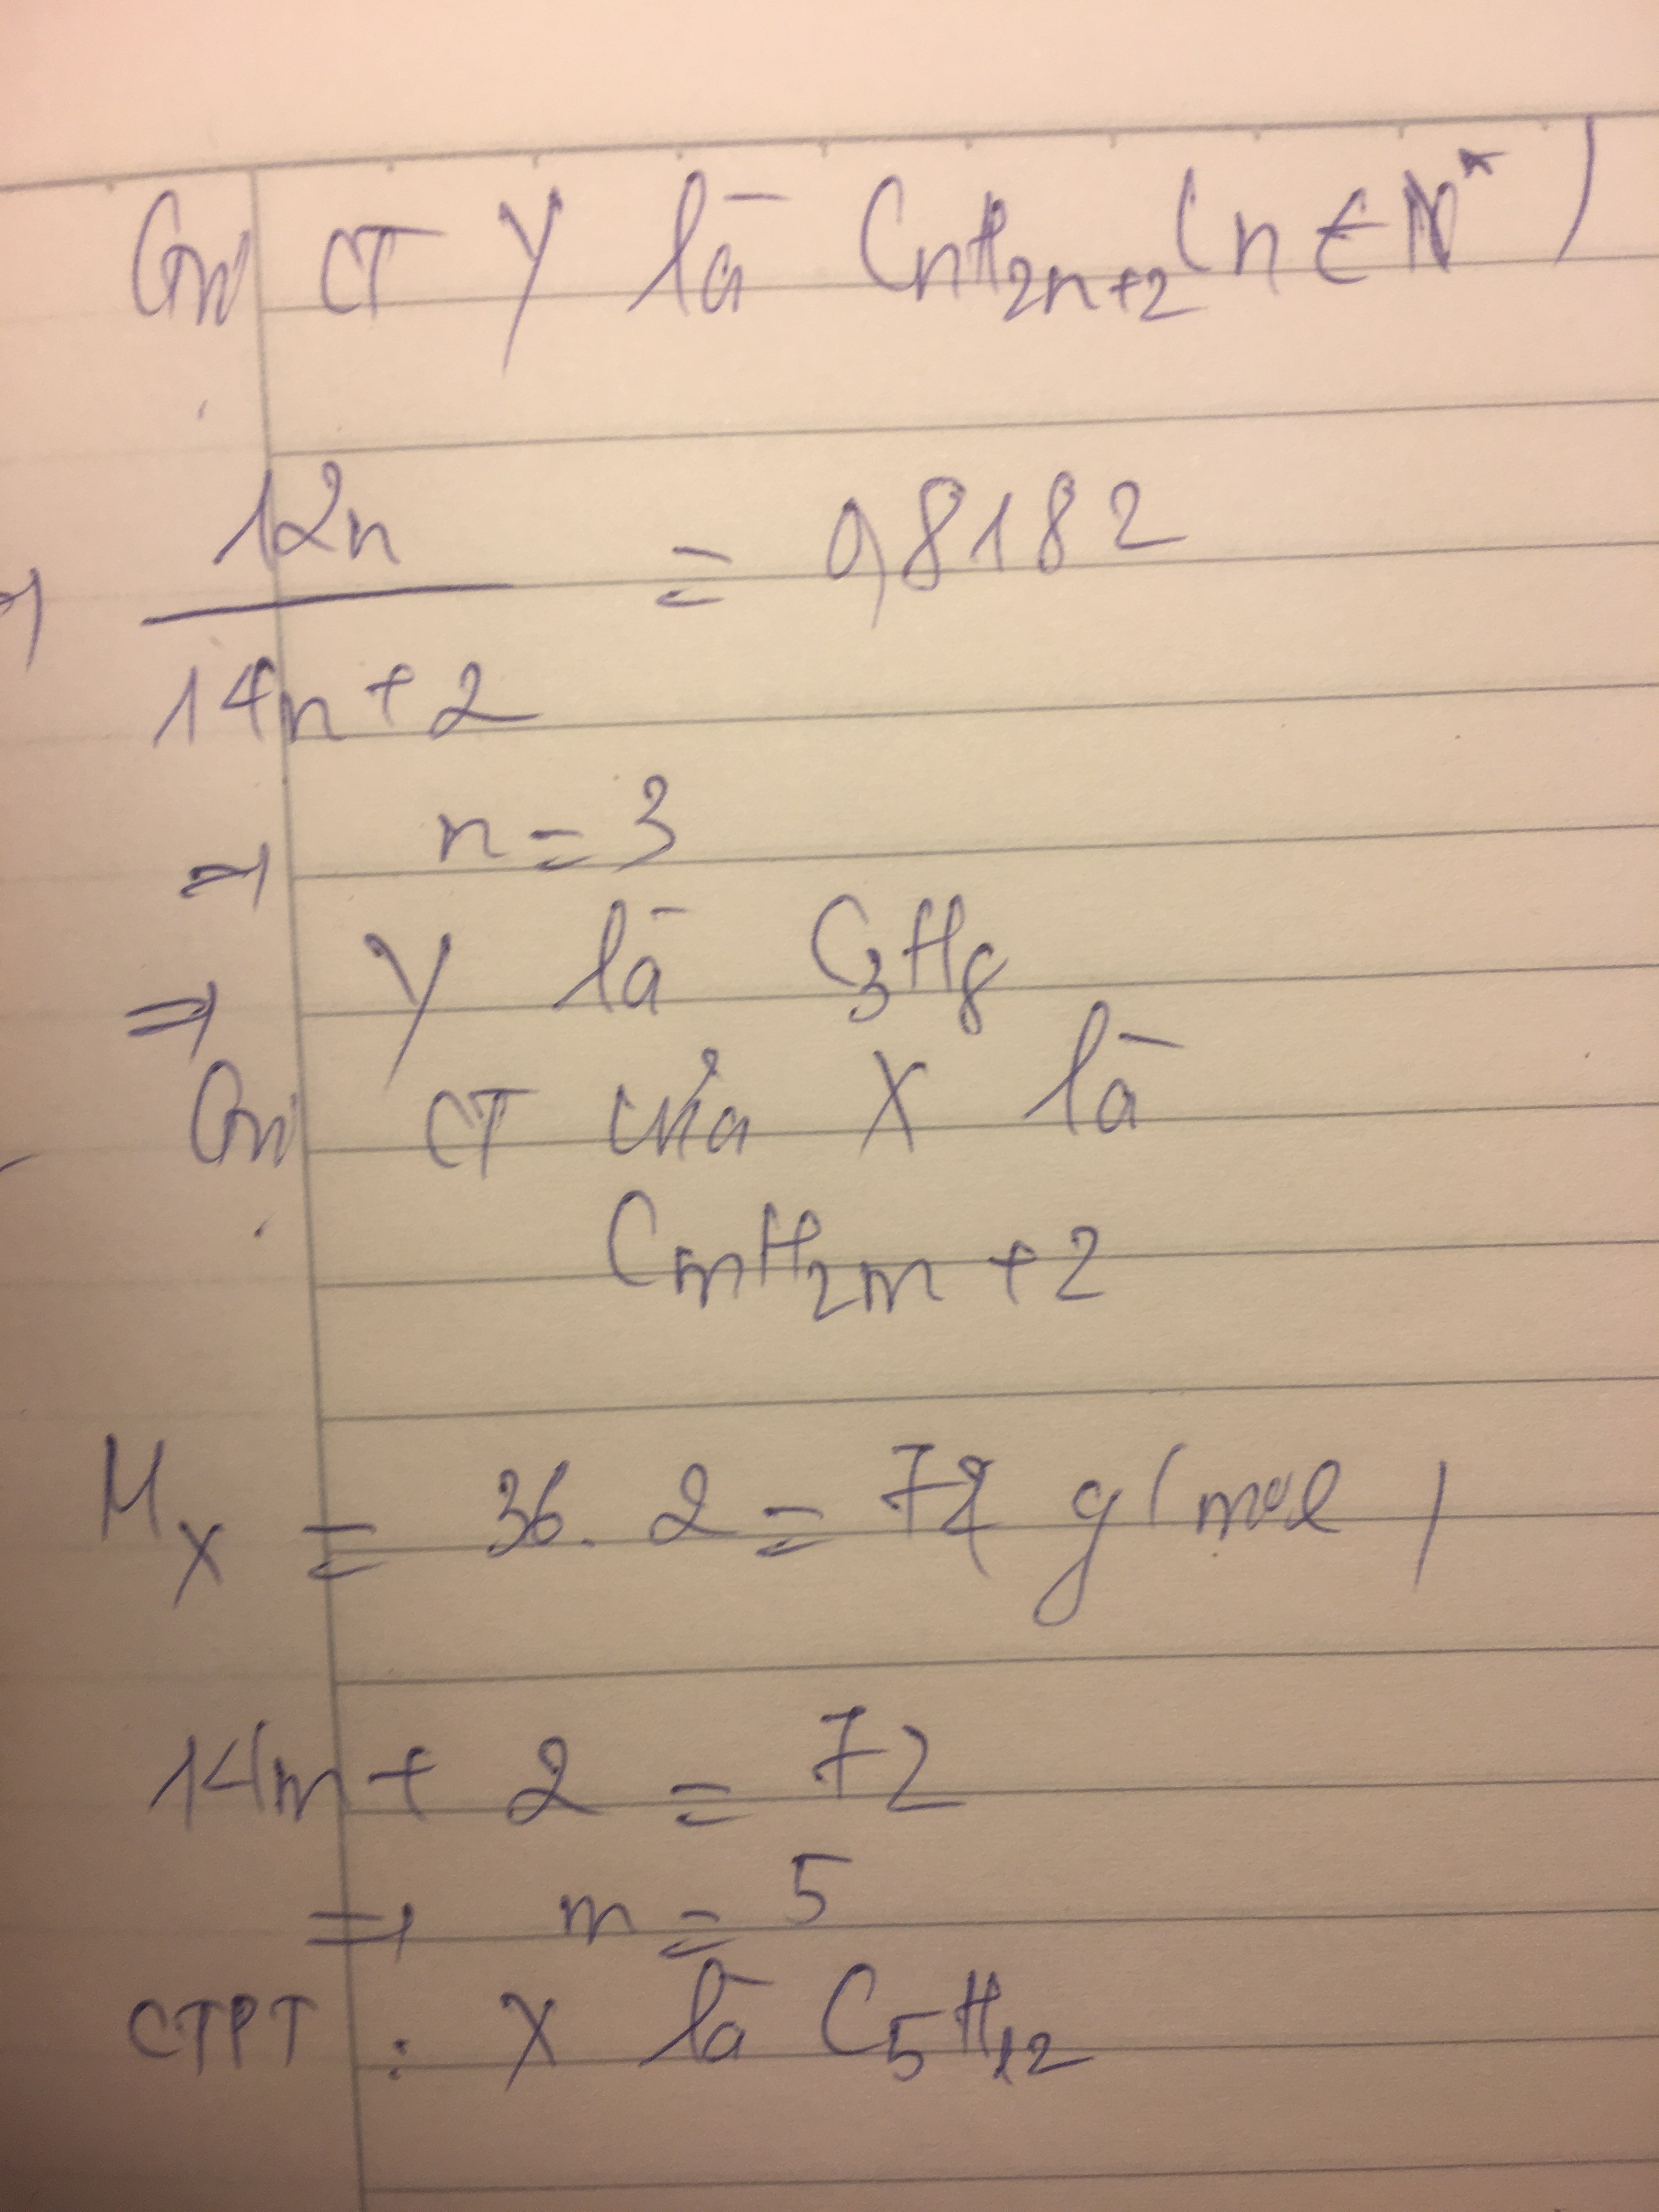 Gọi CT Y là CnH2n+2 (n ∈ N*)
⇒ 12n / 14n+2 = 0,8182
⇒ n = 3
⇒ Y là C3H8
Gọi CT của X là
CmH2m+2
Mx = 36.2 = 72 g(mol)
14m + 2 = 72
⇒ m = 5
CTPT : X là C5H12